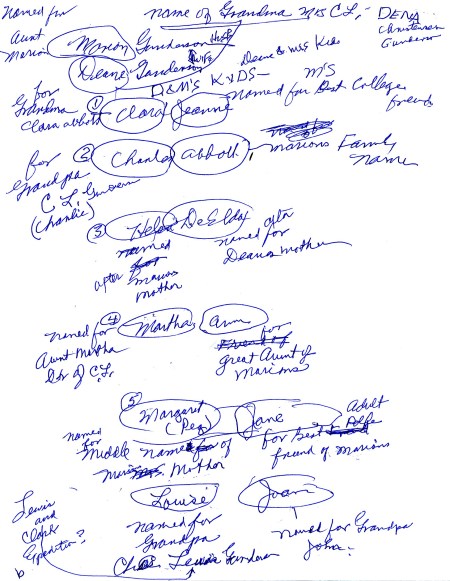 Named for
Aunt
Marion
name of Grandma Mrs C L, - DENA
Christensen
Gunderson
Marion Gunderson Husb
Deane Gunderson wife
Deane & Mrs Kids
D&M'S KIDS -
M'S
for
Grandma
Clara Abbott
① Clara Jeanne
Named for Best College
friend
for
Grandpa
C L Gunderson
(Charlie)
② Charles Abbott,
Marions Family
Name
③ Helen DeElda
named
after
Marions
Mother
named after
for
Deane's mother
named for
Aunt Martha
Dtr of C.L.
④ Martha Ann
for
great Aunt of
Marions
⑤ Margaret
(Peg)
Jane
named
for
Middle name of
Mother
Adult
for Best
friend of Marions
Lewis
and
Clark
Expedition?
Louise Joan
named for
Grandpa
Lewis Gunderson
named for Grandpa
John.